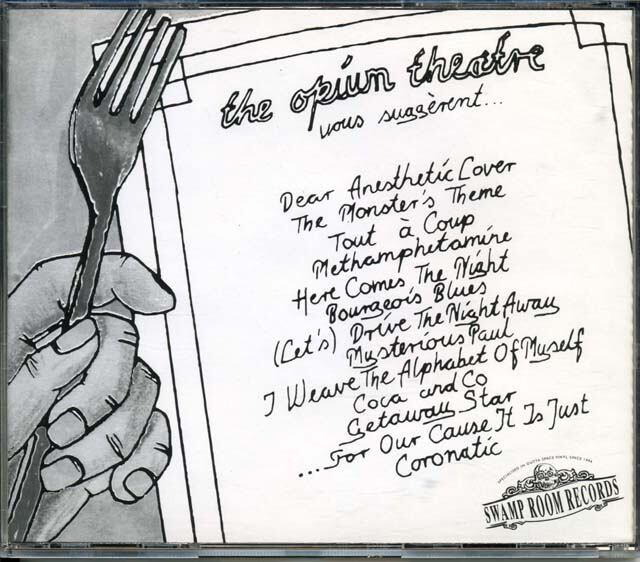 the opium theatre
vous suggèrent...
Dear Anesthetic Lover
The Monster's Theme
Tout à Coup
Methamphetamine
Here Comes The Night
Bourgeois Blues
(Let's) Drive The Night Away
Mysterious Paul
I Weave The Alphabet Of Myself
Coca and Co
Getaway Star
....For Our Cause It Is Just
Coronatic
SPECIALIZED IN OUTTA SPACE VINYL SINCE
SWAMP ROOM RECORDS